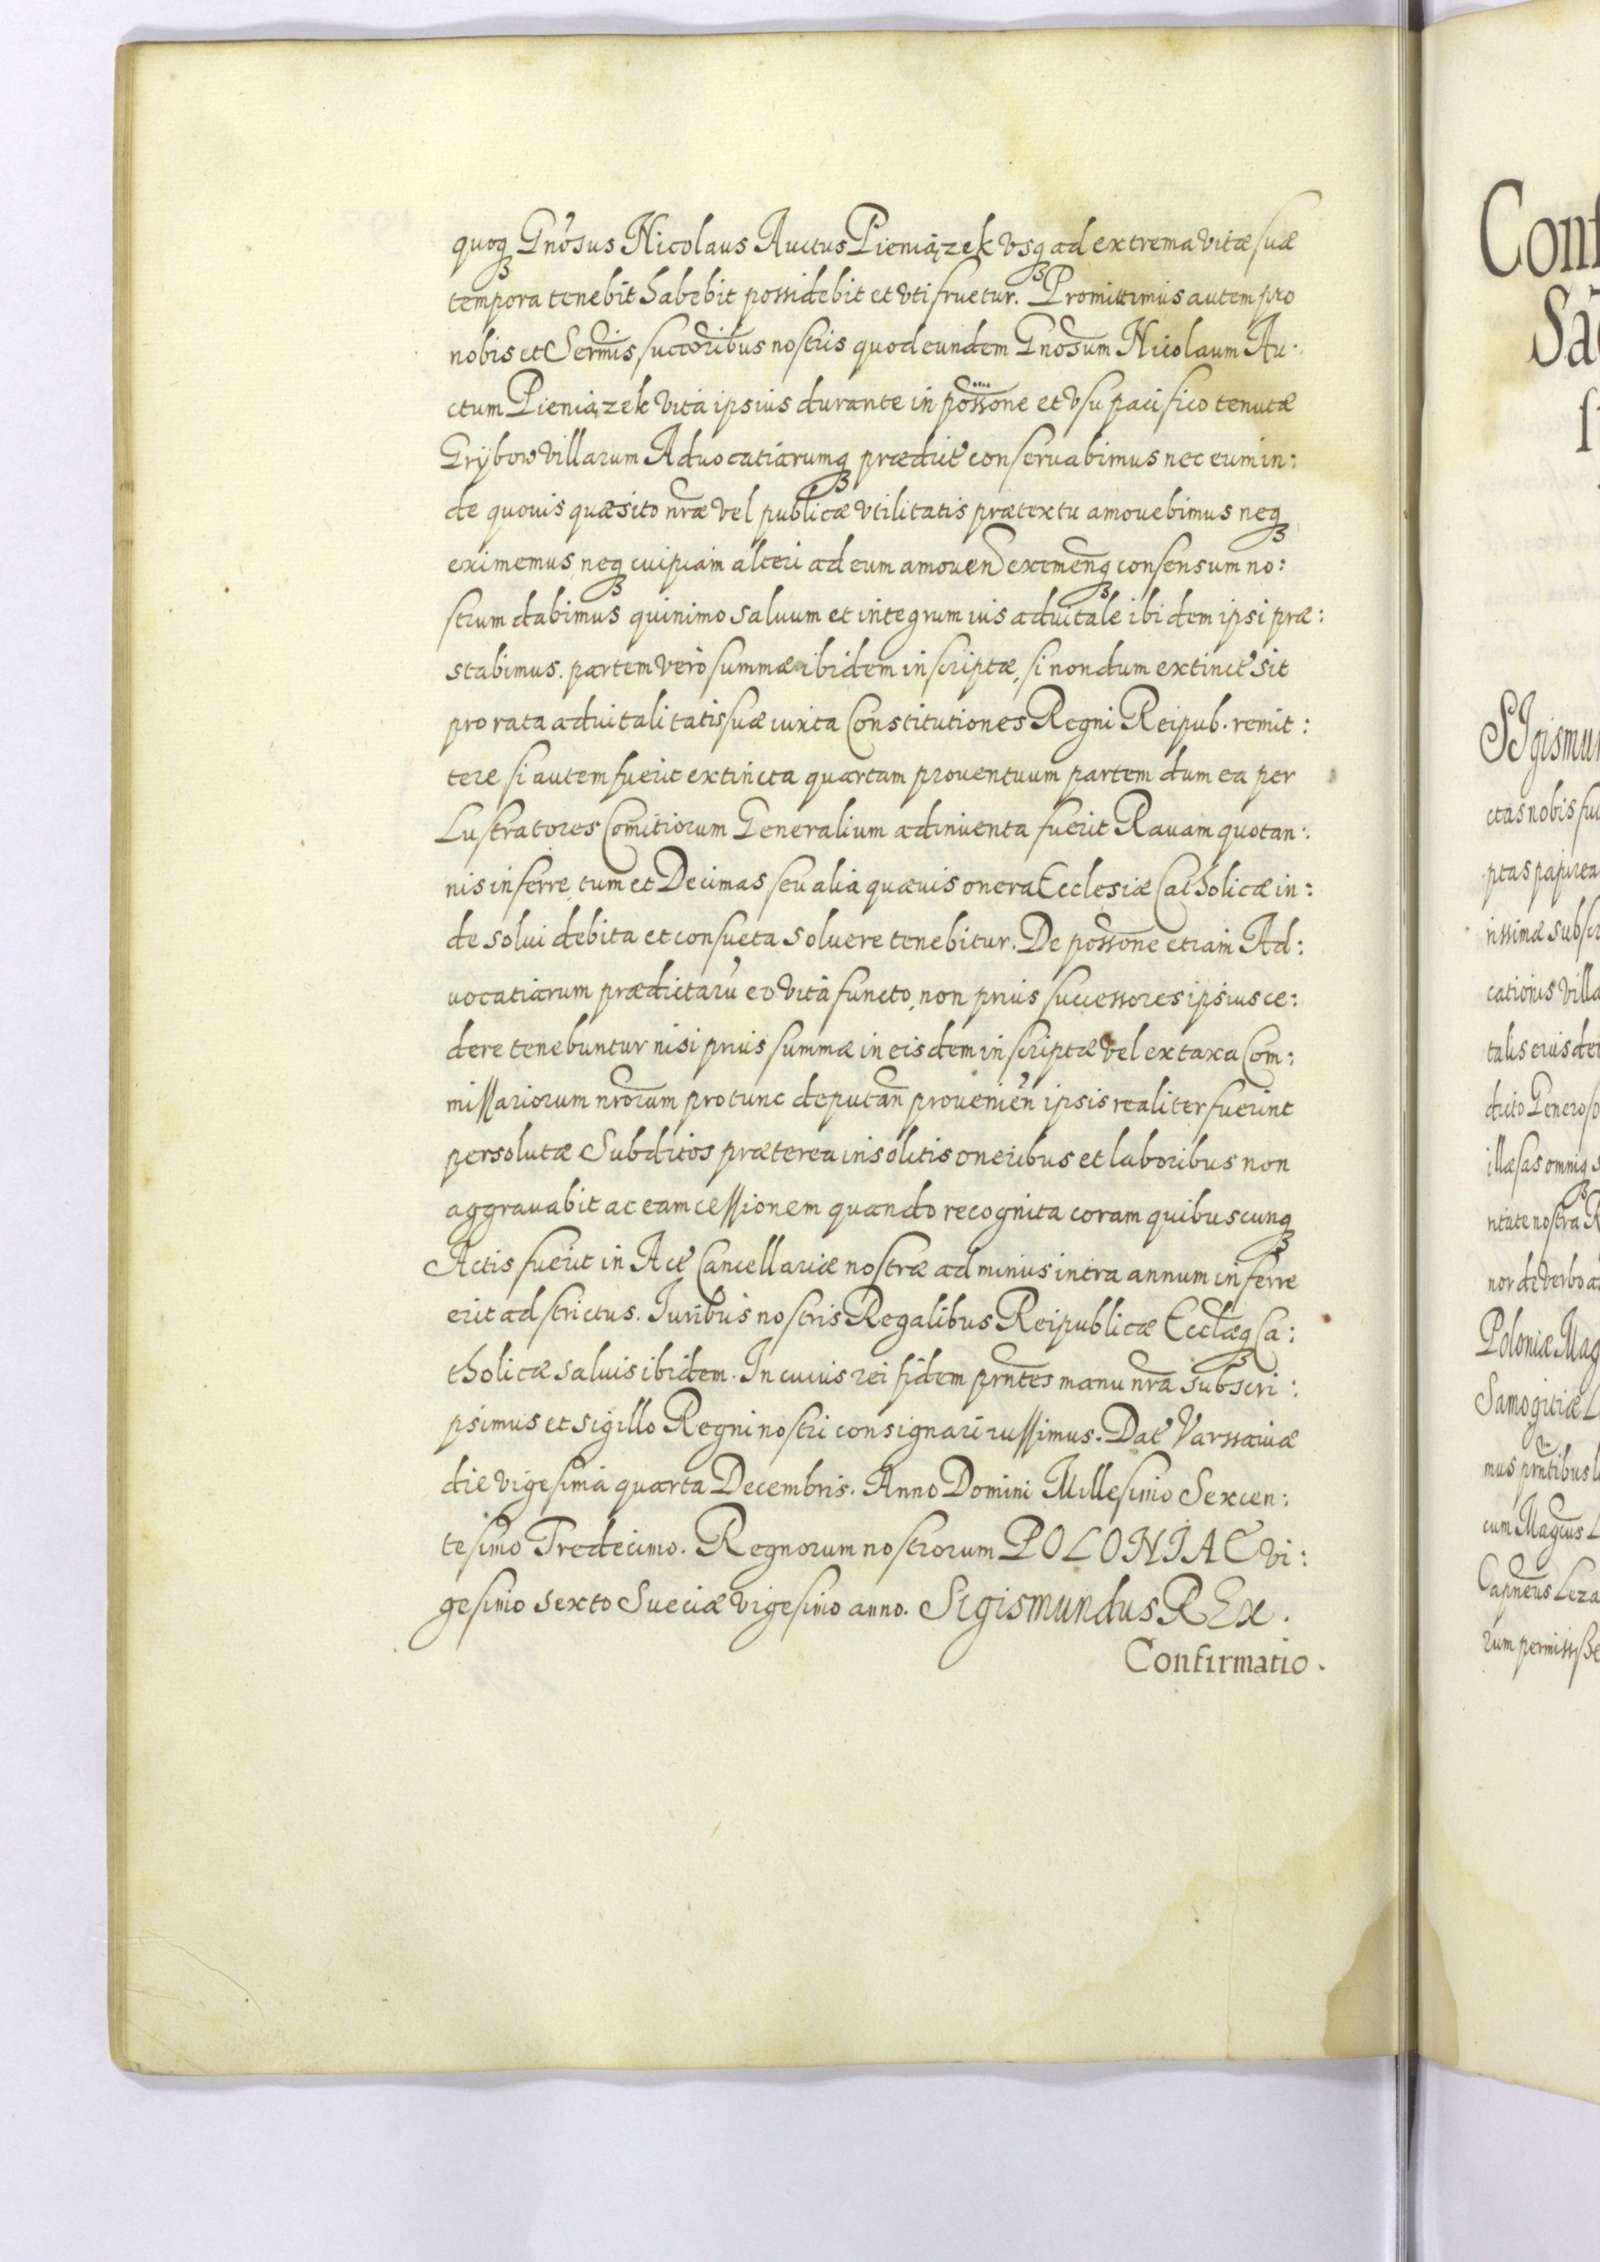 quoq́ꝫ Gn̄osus Nicolaus Auctus Pieniązek vsqꝫ ad extrema vitæ suæ
tempora tenebit habebit possidebit et vtifruetur. Promittimus autem pro
nobis et Serm̄is succoribus nostris quod eundem Gnosum Nicolaum Au:
ctum Pieniązek vita ipsius durante in possone et vsu pacifico tenutæ
Grÿbow villarum Aduocatiarumqꝫ prædict conseruabimus nec eum in:
de quouis quæsito nr̄æ vel publicæ vtilitatis prætextu amouebimus neqꝫ
eximemus, neqꝫ cuipiam alteri ad eum amouen eximen̄qꝫ consensum no:
strum dabimus quinimo saluum et integrum ius aduitale ibidem ipsi præ:
stabimus. partem verò summæ ibidem inscriptæ, si nondum extinct sit
pro rata aduitalitatis suæ iuxta Constitutiones Regni Reipub. remit:
tere si autem fuerit extincta quartam prouentuum partem dum ea per
Lustratores Comitiorum Generalium adinuenta fuerit Rauam quotan:
nis inferre, tum et Decimas seu alia quævis onera Ecclesiæ Catholicæ in:
de solui debita et consueta soluere tenebitur. De possone etiam Ad:
uocatiarum prædictarū eo vitâ functo, non prius successores ipsius ce:
dere tenebuntur nisi prius summæ in eisdem inscriptæ vel ex taxa Com:
missariorum nrorum pro tunc deputan̄ prouenien̄ ipsis realiter fuerint
persolutæ Subditos præterea insolitis oneribus et laboribus non
aggrauabit ac eam cessionem quando recognita coram quibuscunqꝫ
Actis fuerit in Act Cancellariæ nostræ ad minus intra annum inferre
erit adstrictus. Iuribus nostris Regalibus Reipublicæ Ecclæqꝫ Ca:
tholicæ saluis ibidem. In cuius rei fidem prn̄tes manu nr̄a subscri:
psimus et sigillo Regni nostri consignari iussimus. Dat Varssaviæ
die vigesima quarta Decembris. Anno Domini Millesimo Sexcen:
tesimo Tredecimo. Regnorum nostrorum POLONIAE vi:
gesimo sexto Sueciæ vigesimo anno. Sigismundus REx.
Confirmatio.
Conf
Sac
SIgismun
ctas nobis fu
ptas papirea
rissimæ subscr
cationis villa
talis eius dem
dicto Generoso
illæsas omniqꝫ s
ntate nostra R
nor de verbo a
Poloniæ Mag
Samogitiæ L
mus prn̄tibus l
cum Magcus L
Capneus Leza